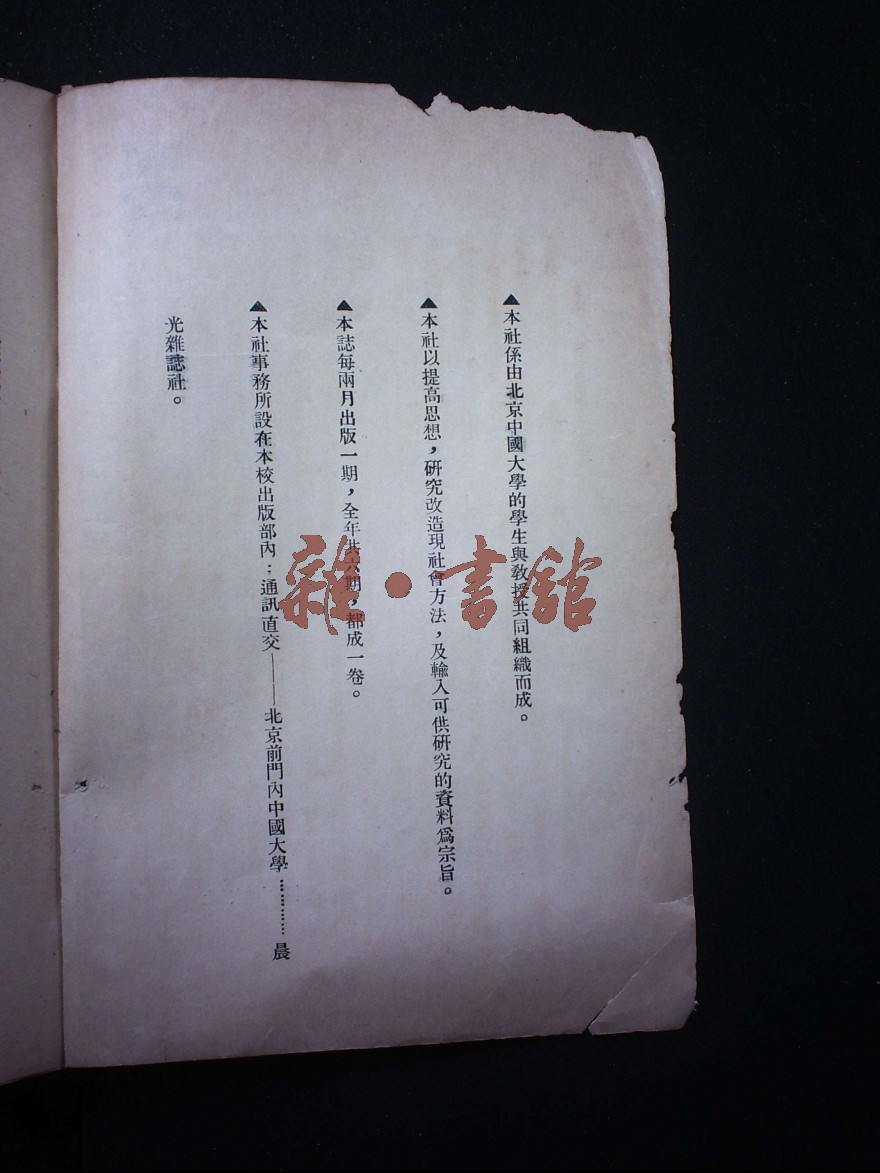 ▲本社係由北京中國大學的學生與敎授共同組織而成。
▲本社以提高思想，硏究改造現社會方法，及輸入可供硏究的資料爲宗旨。
▲本誌每兩月出版一期，全年共六期，都成一卷。
▲本社事務所設在本校出版部內；通訊直交——北京前門內中國大學…………晨
光雜誌社。
雜·書館